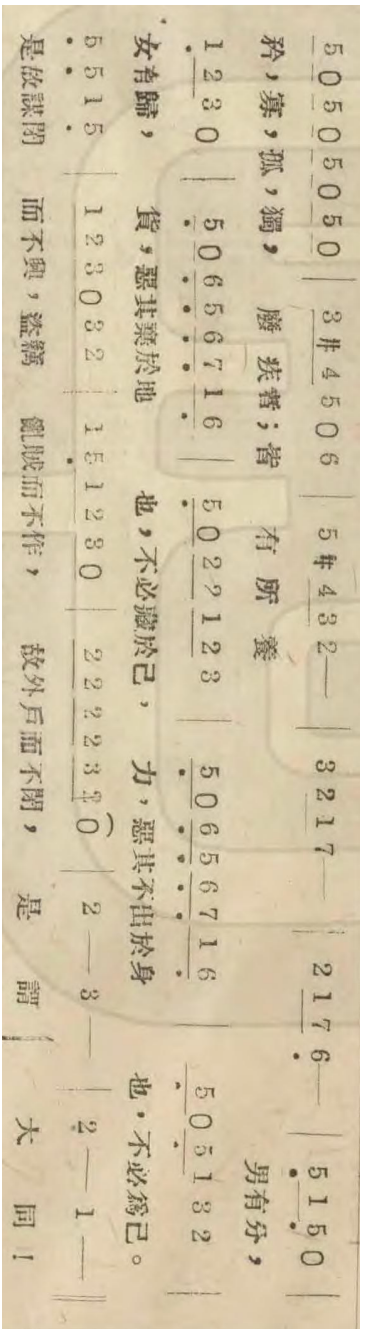 5 0 5 0 5 0 5 0 | 3 #4 5 0 6 | 5 #4 3 2 — | 3 2 1 7 — | 2 1 7 6 — | 5 1 5 0 |
矜，寡，孤，獨，廢疾者；皆有所養 男有分，
1 2 3 0 | 5 0 6 5 6 7 1 6 | 5 0 2 2 1 2 3 | 5 0 6 5 6 7 1 6 | 5 0 5 1 3 2 |
女有歸，貨，惡其棄於地也，不必藏於己，力，惡其不出於身也，不必爲己。
5 5 1 5 | 1 2 3 0 3 2 | 1 5 1 2 3 0 | 2 2 2 2 3 2 0 | 2 — 3 — | 2 — 1 — ‖
是故謀閉而不興，盜竊亂賊而不作，故外戶而不閉，是謂大同！